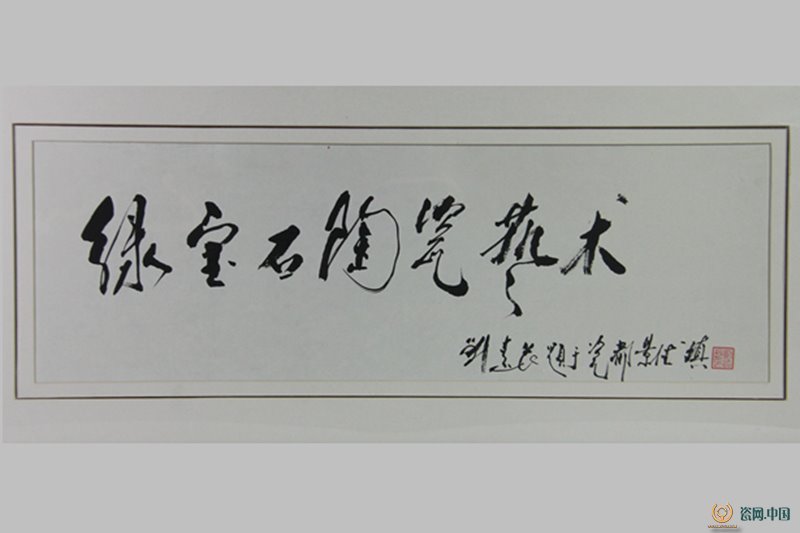 绿宝石陶瓷艺术
劉素 题于瓷都景德镇
瓷网.中国